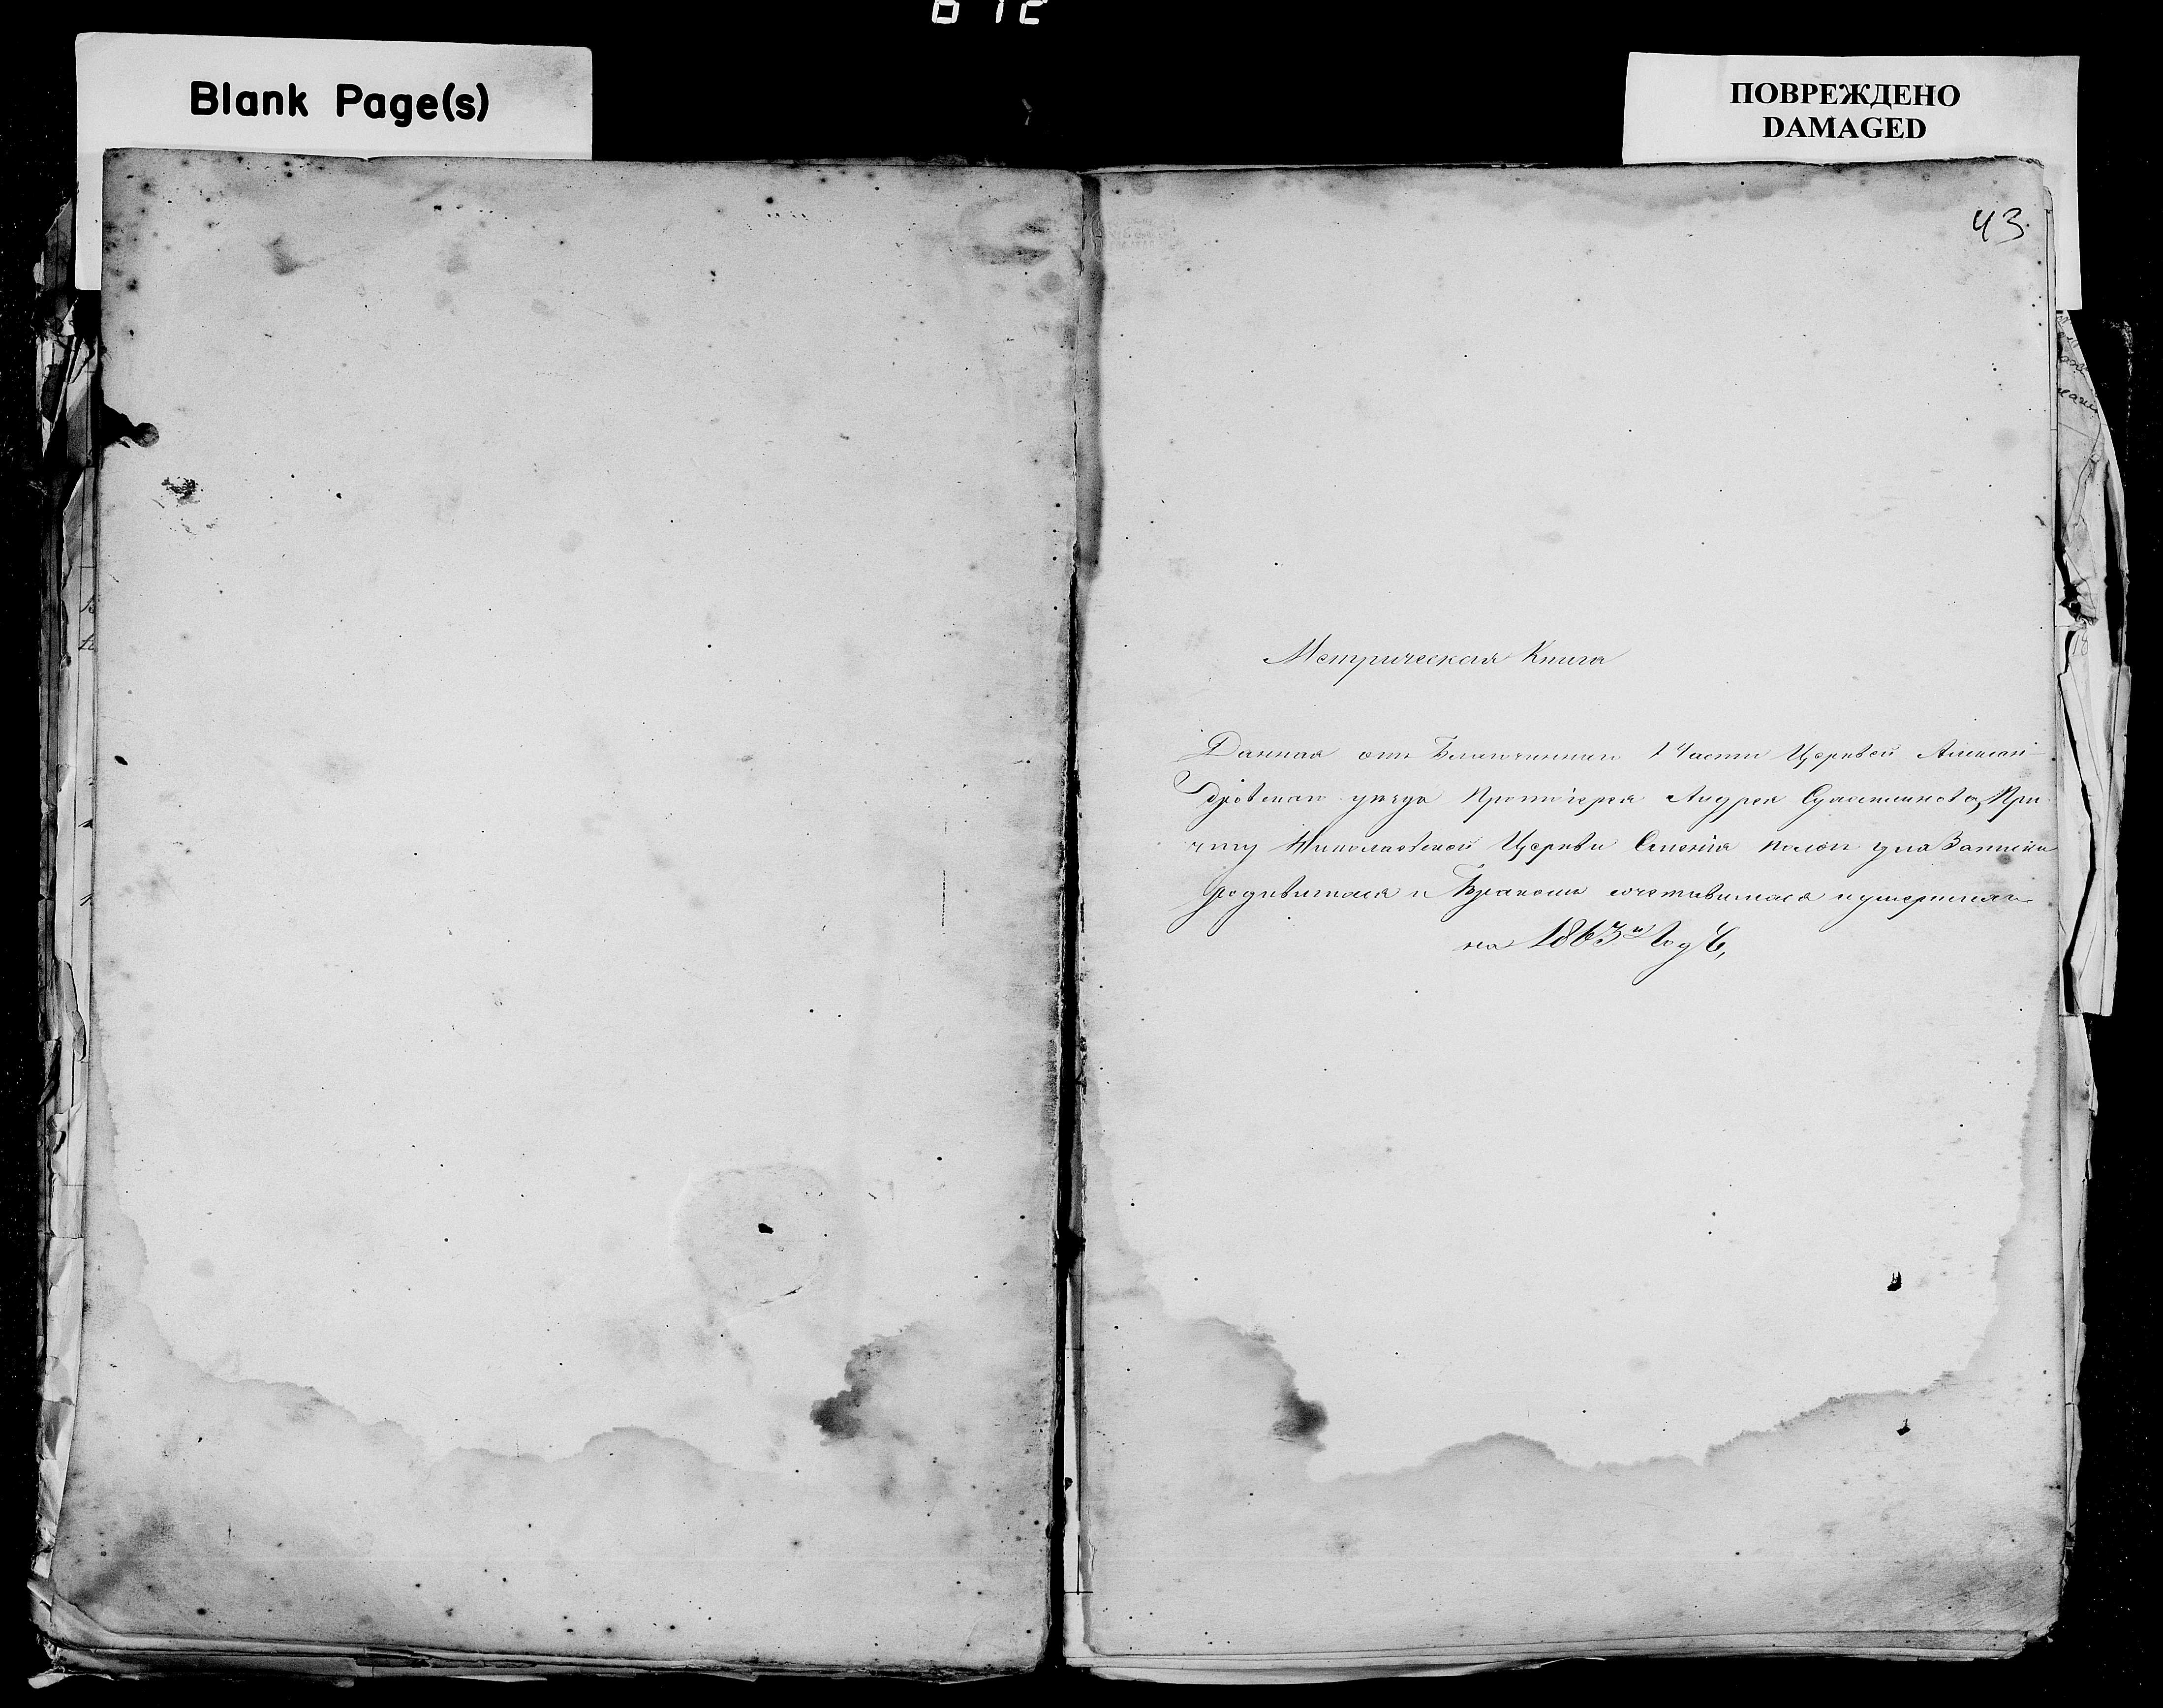 Blank Page(s)
ПОВРЕЖДЕНО
DAMAGED
43
Метрическая Книга
Данная отъ Благочиннаго 1 Части Церквей Алексан-
дровскаго уезда Протоіерея Андрея При-
чту Николаевской Церкви Селенія для Записки
родившихся и Бракомъ сочетавшихся и умершихъ
на 1863й Годъ,